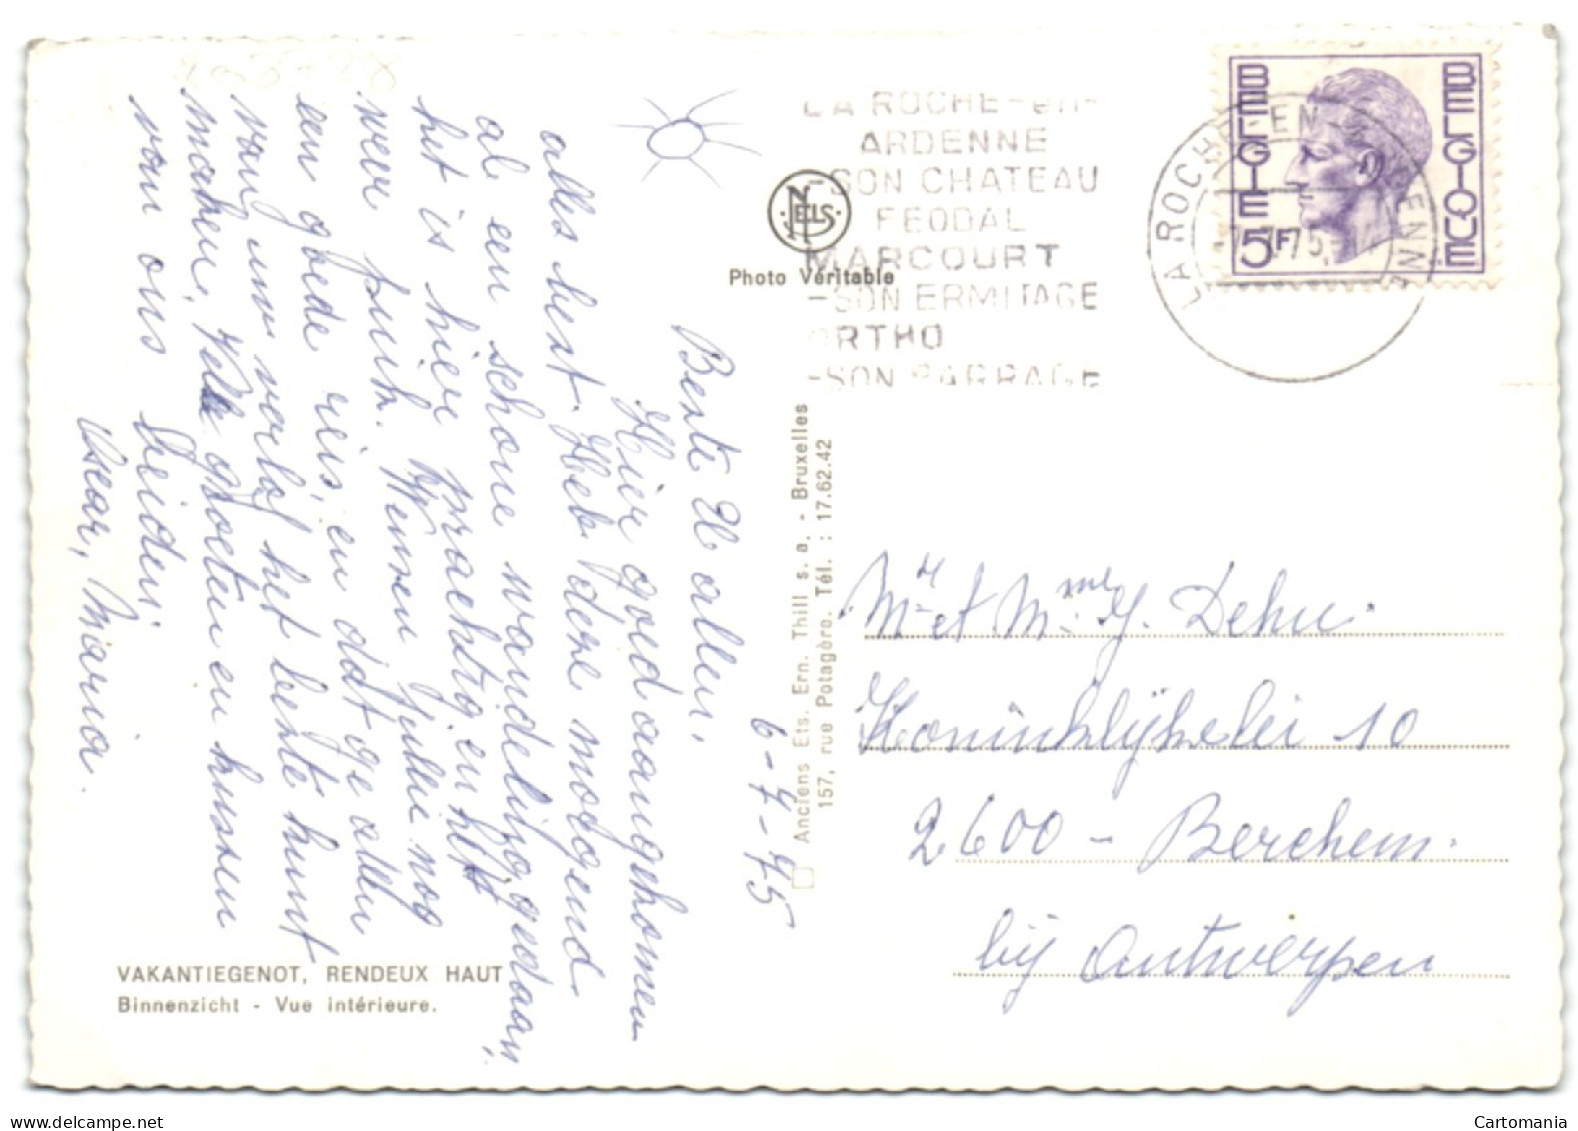 6-7-75
Beste U allen,
Hier goed aangekomen
alles best. Heb deze morgend
al een schone wandeling gedaan,
het is hier prachtig en
weer puik. Wensen jullie nog
een goede reis, en dat ge allen
van uw verlof het beste kunt
maken, Vele groeten en kussen
van ons Heidi
Oscar, Maria.
VAKANTIEGENOT, RENDEUX HAUT
Binnenzicht - Vue intérieure.
NELS
Photo Véritable
Anciens Ets. Ern. Thill s. a. - Bruxelles
157, rue Potagère. Tél. : 17.62.42
LA ROCHE-en-
ARDENNE
-SON CHATEAU
FEODAL
MARCOURT
-SON ERMITAGE
ORTHO
-SON BARRAGE
LA ROCHE-EN-ARDENNE
7.75
BELGIE
BELGIQUE
5F
Mr et Mme J. Dehu.
Koninklijkelei 10
2600 - Berchem.
bij Antwerpen
www.delcampe.net
Cartomania